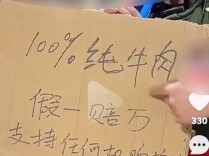 100%纯牛肉
假一赔万
支持任何机构
230